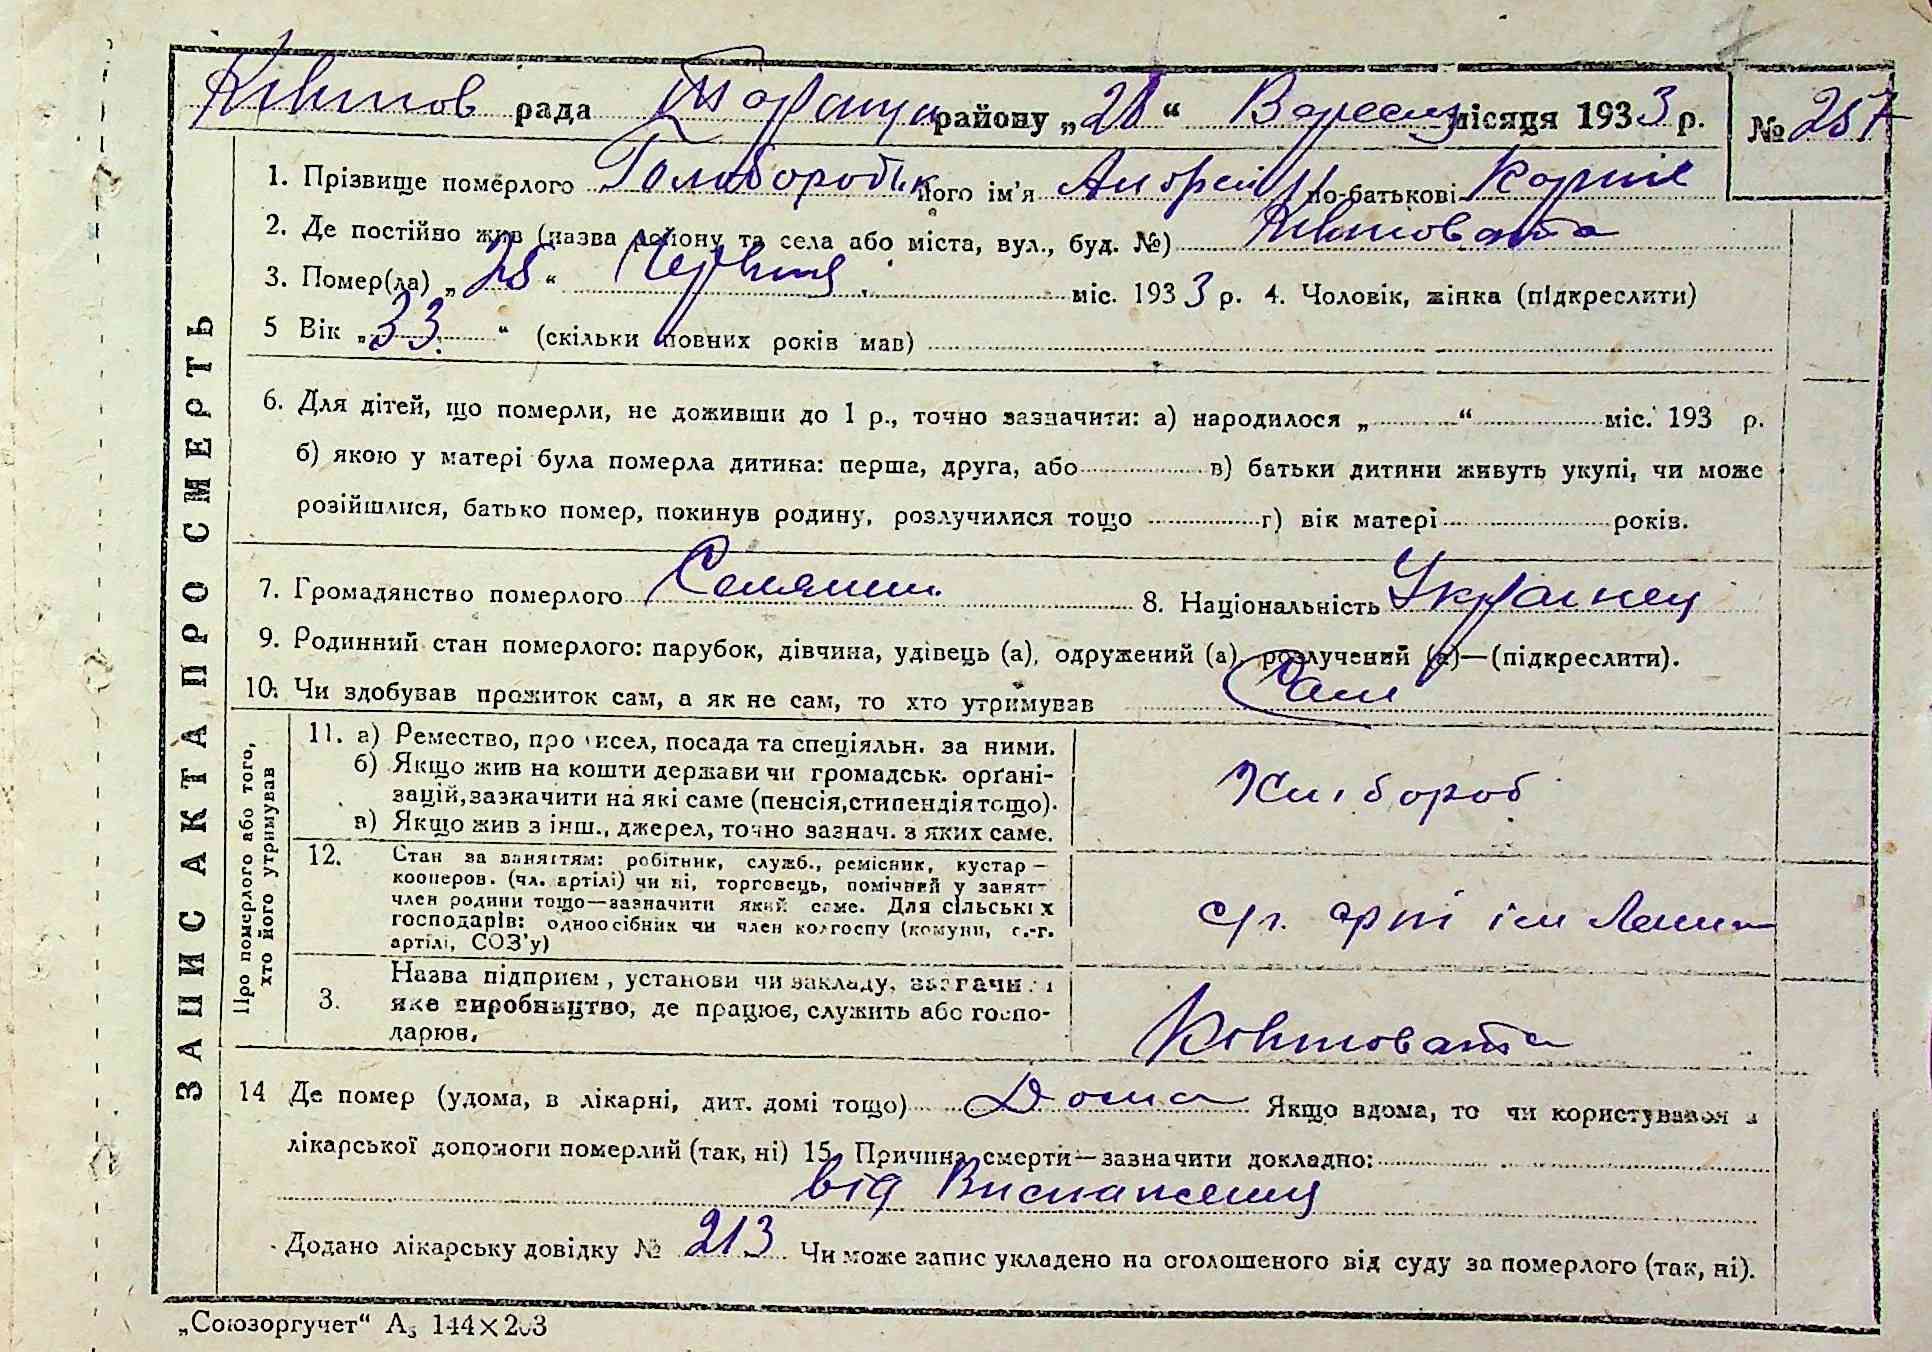 Ківшов рада Тараща району „28“ Вересня місяця 1933 р. № 257
1. Прізвище померлого Голобородьк його ім'я Андрей по-батькові Корніє
2. Де постійно жив (назва району та села або міста, вул., буд. №) Ківшовата
3. Помер(ла) „28“ Червня міс. 1933 р. 4. Чоловік, жінка (підкреслити)
5 Вік „33“ (скільки повних років мав)
6. Для дітей, що померли, не доживши до 1 р., точно зазначити: а) народилося „ “ міс. 193 р.
б) якою у матері була померла дитина: перша, друга, або в) батьки дитини живуть укупі, чи може
розійшлися, батько помер, покинув родину, розлучилися тощо г) вік матері років.
7. Громадянство померлого Селянин 8. Національність Украінец
9. Родинний стан померлого: парубок, дівчина, удівець (а), одружений (а), розлучений (а)—(підкреслити).
10. Чи здобував прожиток сам, а як не сам, то хто утримував Сам
ЗАПИС АКТА ПРО СМЕРТЬ
Про померлого або того,
хто його утримував
11. а) Ремество, про исел, посада та спеціяльн. за ними.
б) Якщо жив на кошти держави чи громадськ. орґані-
зацій, зазначити на які саме (пенсія, стипендія тощо).
в) Якщо жив з інш., джерел, точно зазнач. з яких саме.
Хлібороб
12. Стан за заняттям: робітник, служб., ремісник, кустар —
кооперов. (чл. артілі) чи ні, торговець, помічний у занят-
член родини тощо—зазначити який саме. Для сільських
господарів: одноосібник чи член колгоспу (комуни, с.-г.
артілі, СОЗ'у)
арт ім Леніна
3. Назва підприєм, установи чи закладу, зазначи
яке виробництво, де працює, служить або госпо-
дарює,
Ківшовата
14 Де помер (удома, в лікарні, дит. домі тощо) Дома Якщо вдома, то чи користувався з
лікарської допомоги померлий (так, ні) 15. Причина смерти—зазначити докладно:
від Виснаження
Додано лікарську довідку № 213 Чи може запис укладено на оголошеного від суду за померлого (так, ні).
„Союзоргучет“ А₅ 144×203